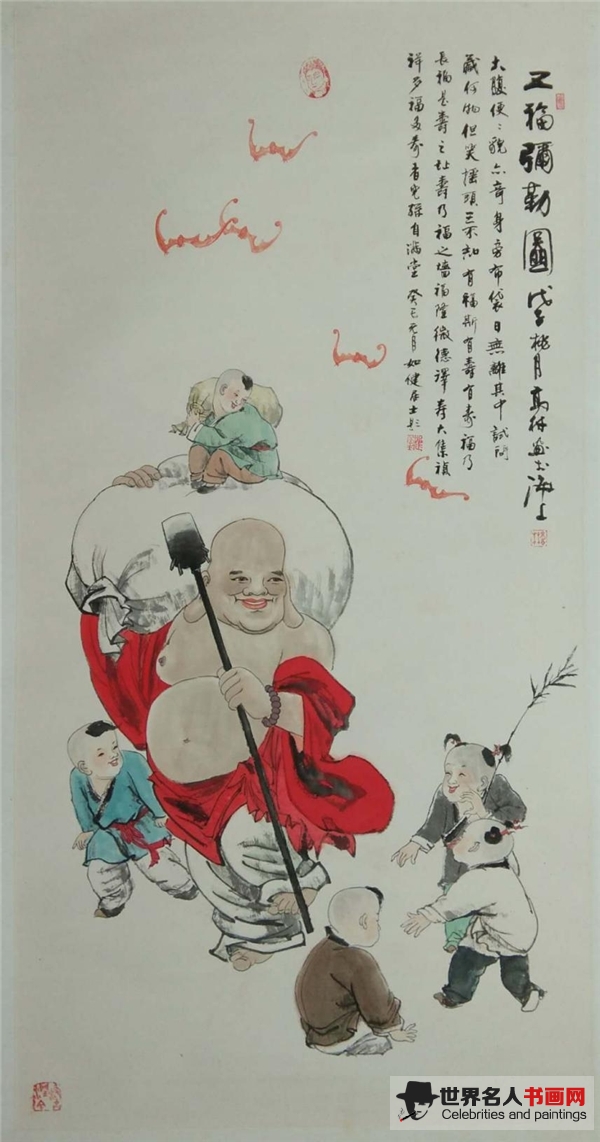 五福彌勒圖 戊子桃月高林畫於海上
大腹便〻貌亦奇身旁布袋日無離其中試問
藏何物但笑搖頭三不知有福斯有壽有壽福乃
長福是壽之址壽乃福之墻福隆徵德澤壽大集禎
祥多福多壽者兒孫自滿堂 癸巳元月如健居士題
世界名人书画网
Celebrities and paintings